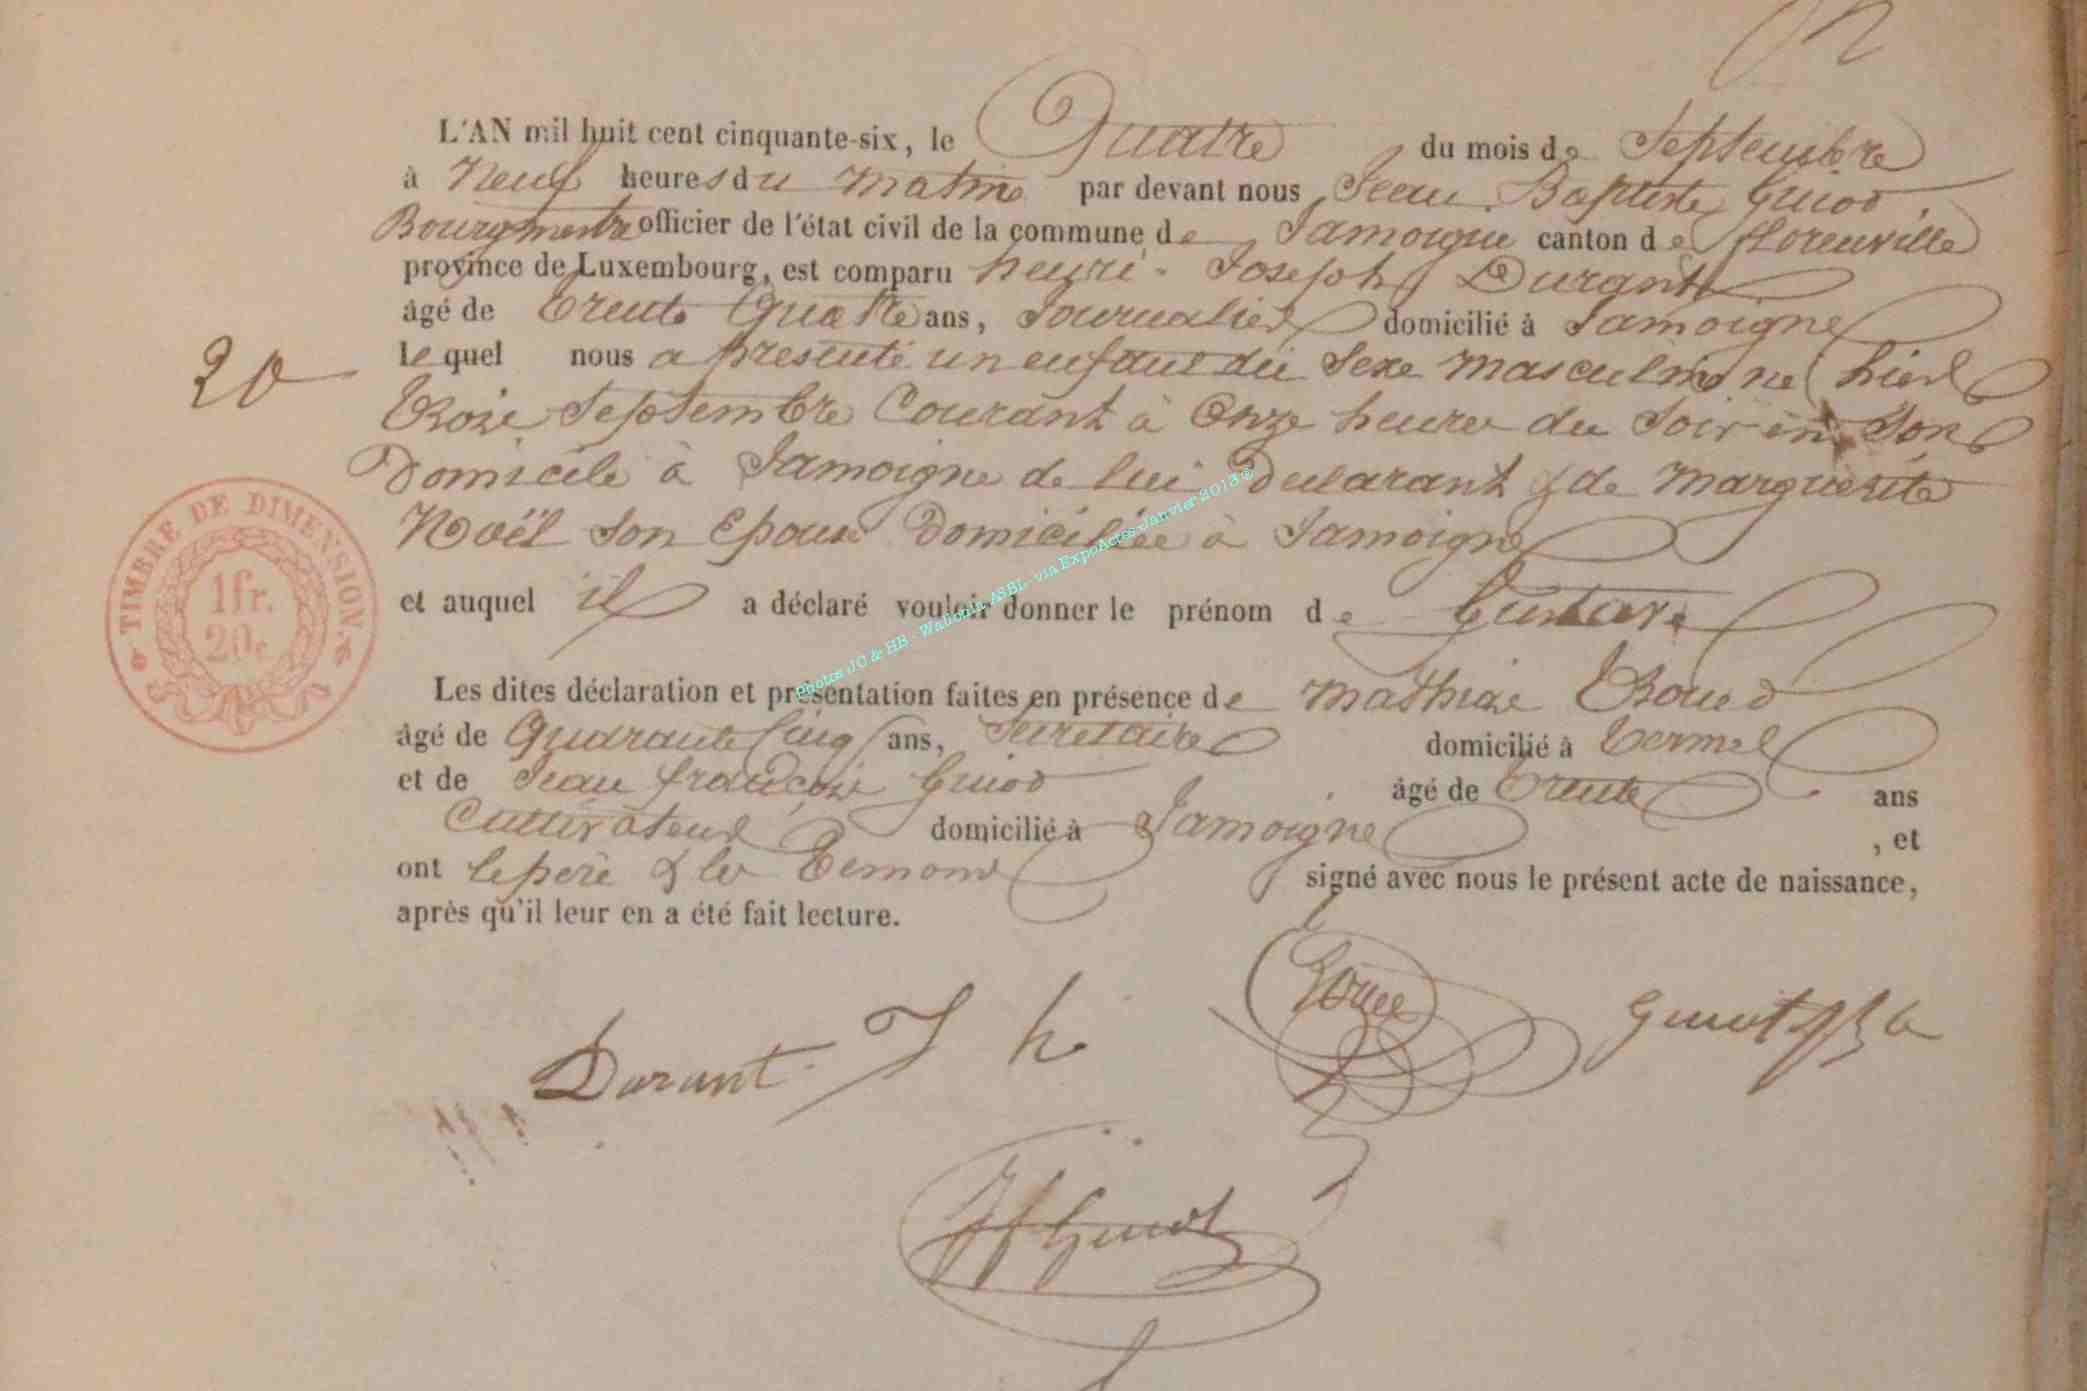 L'AN mil huit cent cinquante-six, le Quatre du mois de Septembre
à Neuf heures du matin par devant nous Jean Baptiste Guiot
Bourgmestre officier de l'état civil de la commune de Jamoigne canton de florenville
province de Luxembourg, est comparu henri Joseph Durant
âgé de trente Quatre ans, Journalier domicilié à Jamoigne
lequel nous a présenté un enfant du Sexe masculin né hier
trois Septembre Courant à Onze heures du Soir en Son
20
Domicile à Jamoigne de lui Déclarant & de Marguerite
Noël Son Epouse Domiciliée à Jamoigne
et auquel il a déclaré vouloir donner le prénom de Gustave
TIMBRE DE DIMENSION
1fr.
20c
Photos JC & HB - Wallonia ASBL - via ExpoActes Janvier 2013 ©
Les dites déclaration et présentation faites en présence de Mathias
âgé de Quarante Cinq ans, Secrétaire domicilié à Termes
et de Jean françois Guiot âgé de trente ans
Cultivateur domicilié à Jamoigne , et
ont le père & les témoins signé avec nous le présent acte de naissance,
après qu'il leur en a été fait lecture.
Durant J h
Guiot JB
JF Guiot